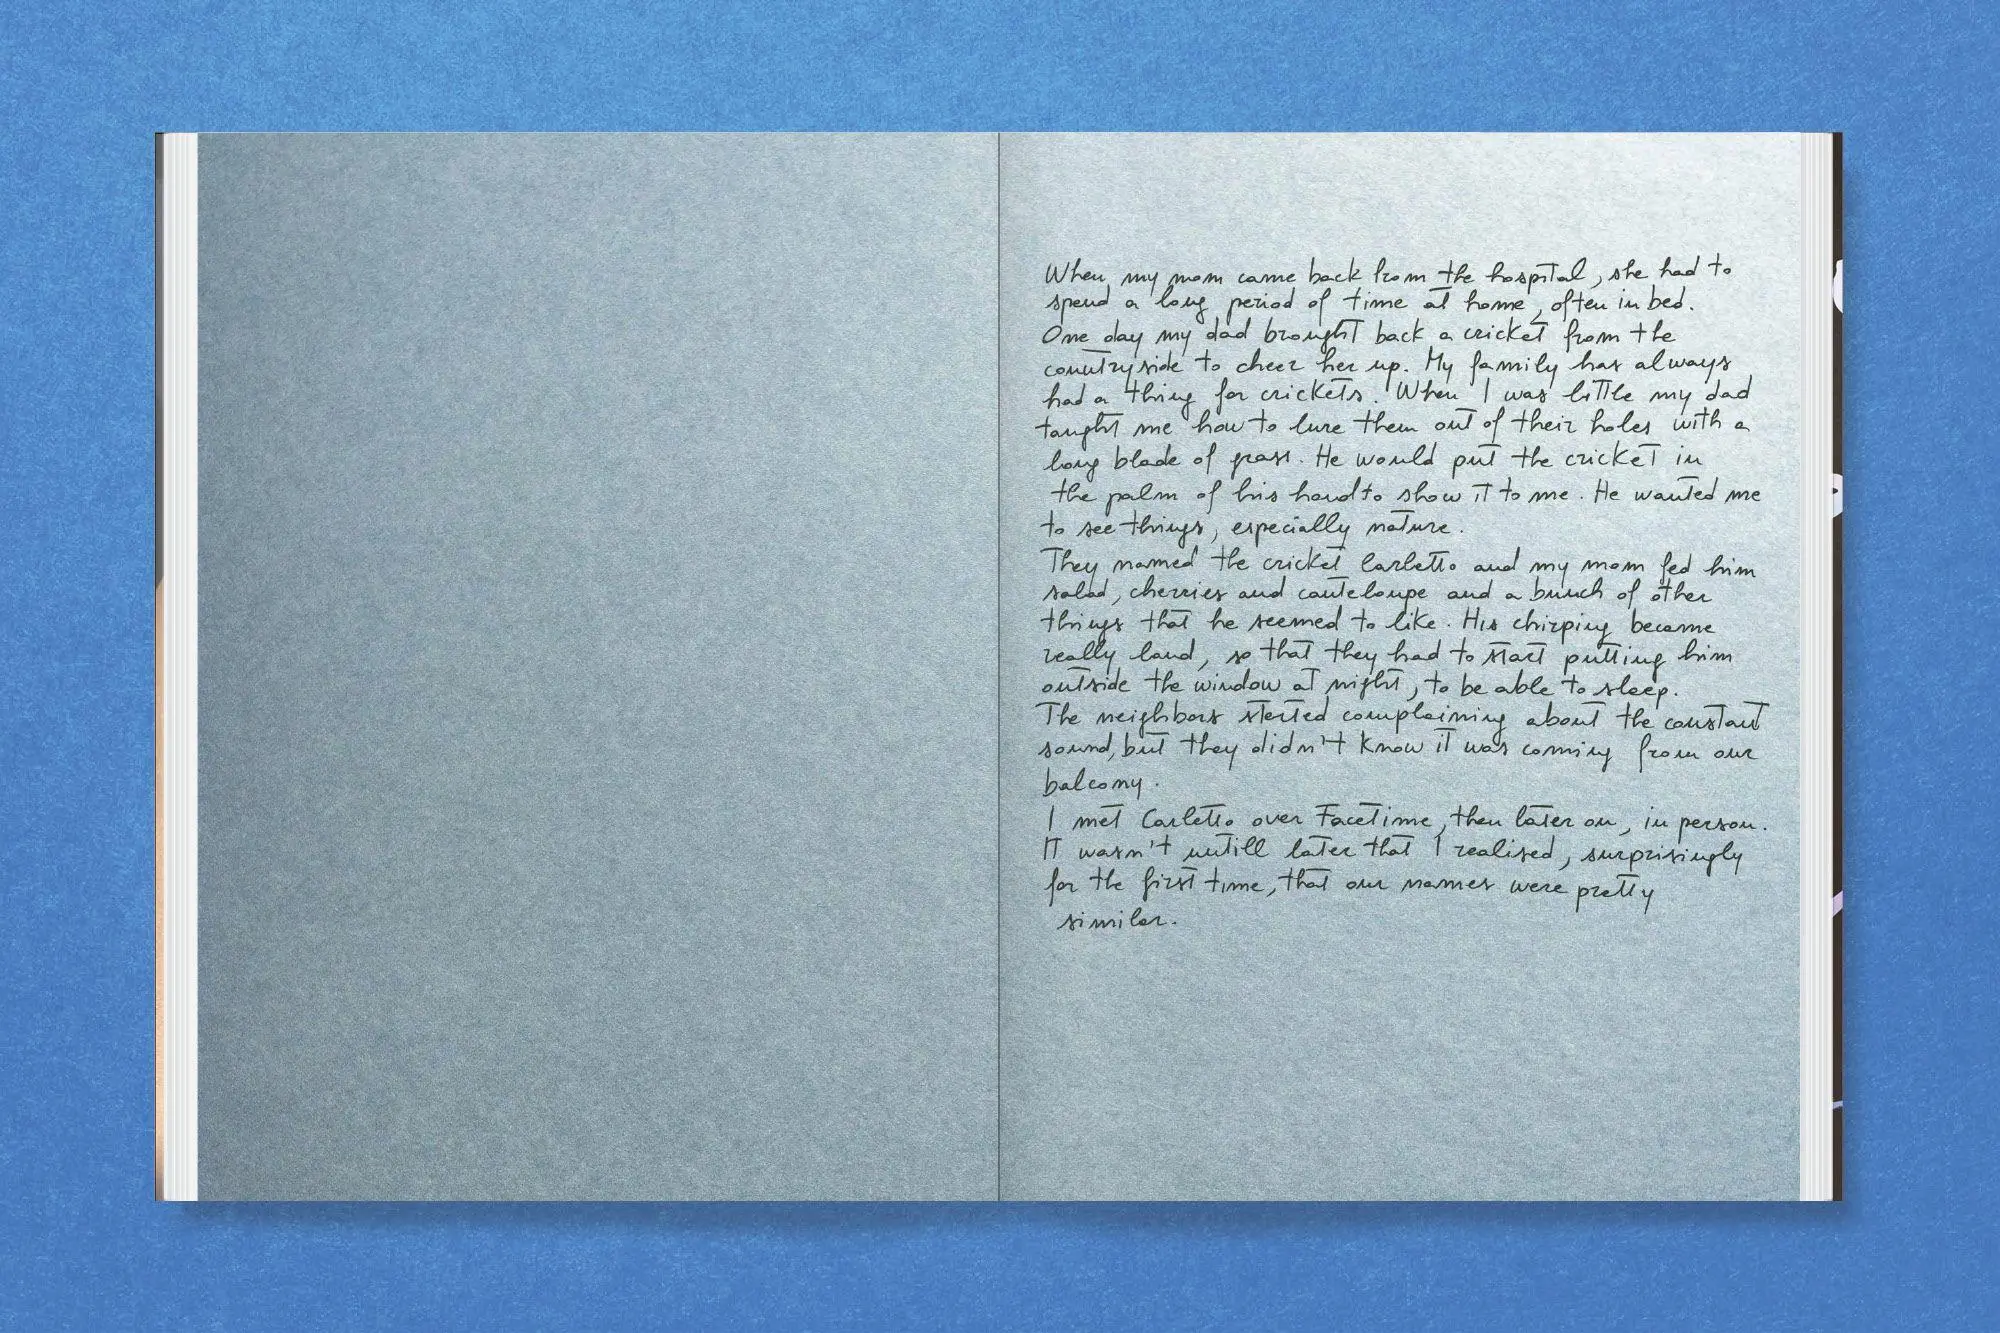 When my mom came back from the hospital, she had to
spend a long period of time at home, often in bed.
One day my dad brought back a cricket from the
countryside to cheer her up. My family has always
had a thing for crickets. When I was little my dad
taught me how to lure them out of their holes with a
long blade of grass. He would put the cricket in
the palm of his hand to show it to me. He wanted me
to see things, especially nature.
They named the cricket Carletto and my mom fed him
salad, cherries and canteloupe and a bunch of other
things that he seemed to like. His chirping became
really loud, so that they had to start putting him
outside the window at night, to be able to sleep.
The neighbors started complaining about the constant
sound, but they didn't know it was coming from our
balcony.
I met Carletto over FaceTime, then later on, in person.
It wasn't untill later that I realised, surprisingly
for the first time, that our names were pretty
similar.